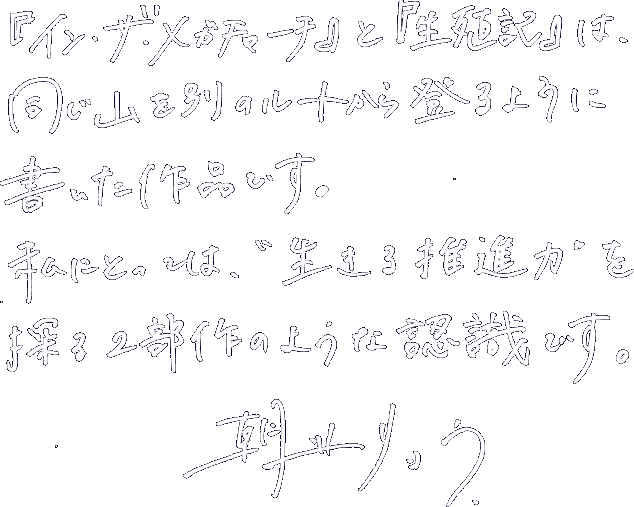 『イン・ザ・メガチャーチ』と『生殖記』は、
同じ山を別のルートから登るように
書いた作品です。
私にとっては、“生きる推進力”を
探る2部作のような認識です。
朝井リョウ